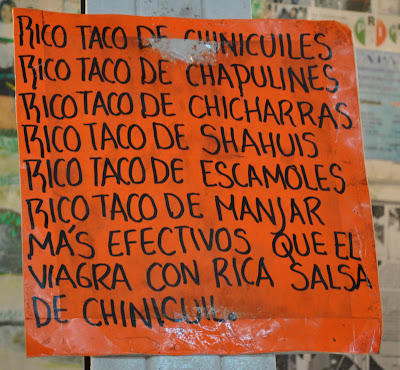 RICO TACO DE CHINICUILES
RICO TACO DE CHAPULINES
RICO TACO DE CHICHARRAS
RICO TACO DE SHAHUIS
RICO TACO DE ESCAMOLES
RICO TACO DE MANJAR
MÁS EFECTIVOS QUE EL
VIAGRA CON RICA SALSA
DE CHINICUIL.